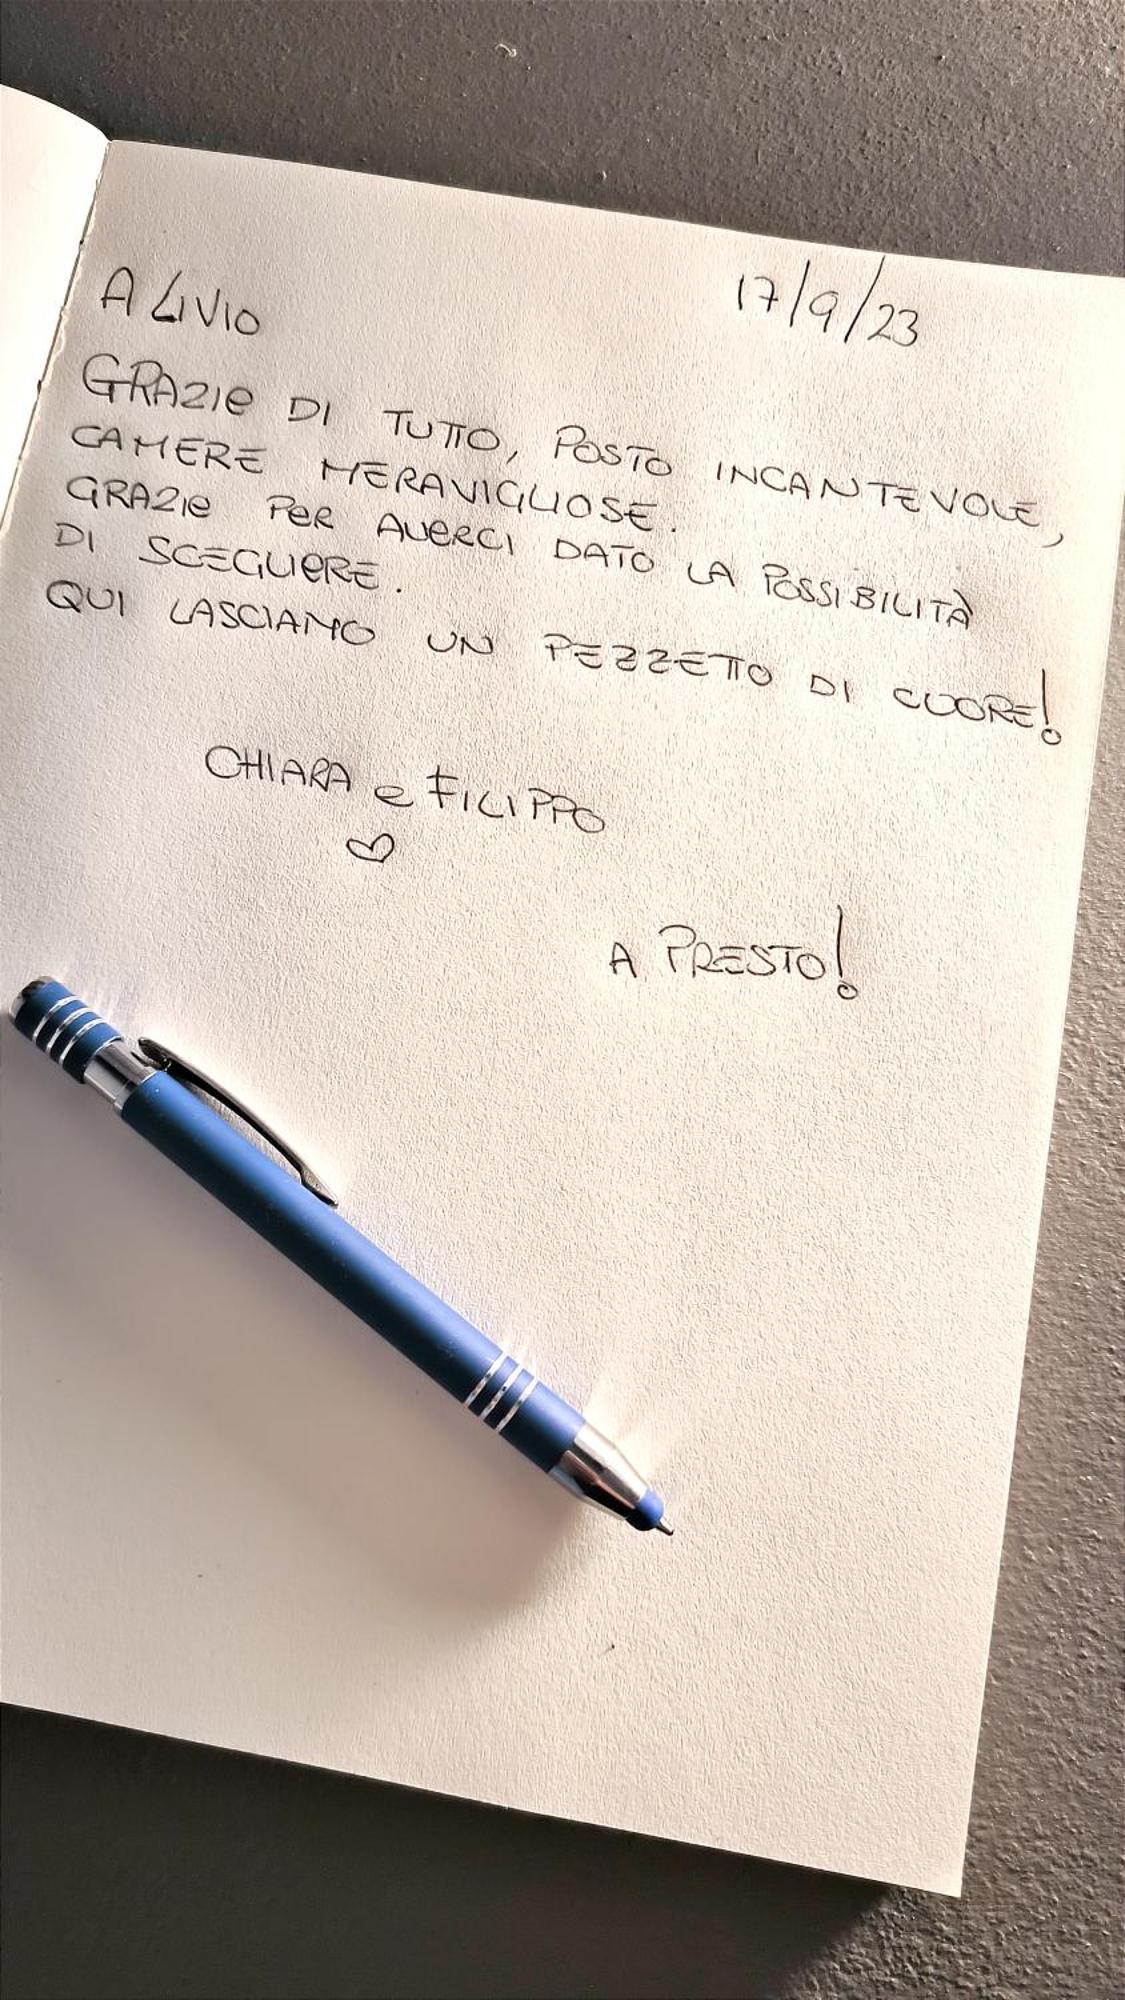 A LIVIO
17/9/23
GRAZIe DI TUTTO, POSTO INCANTEVOLE,
CAMERE MERAVIGLIOSE.
GRAZIe PeR AVeRCI DATO LA POSSIBILITÀ
DI SCEGLIeRE.
QUI LASCIAMO UN PEZZETTO DI CUORE!
CHIARA e FILIPPO
A PRESTO!